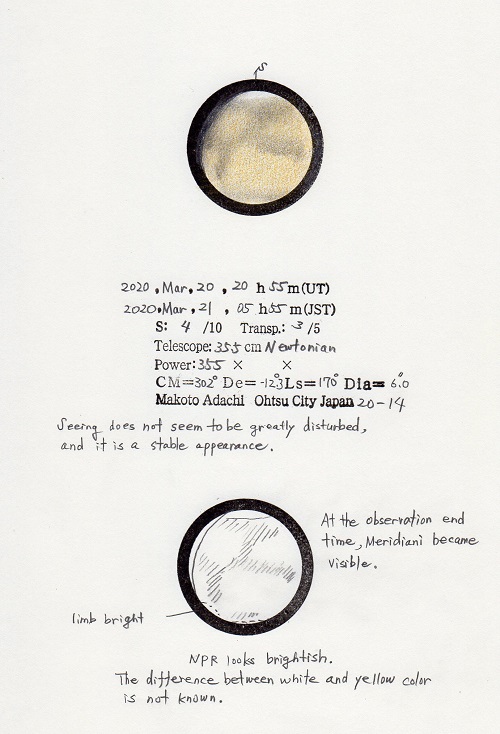 S
2020, Mar. 20, 20 h 55 m (UT)
2020. Mar, 21, 05 h 55 m (JST)
S: 4 /10 Transp.: 3 /5
Telescope: 355 cm Newtonian
Power: 355 × ×
CM=302° De= -12.3° Ls=170° Dia= 6.0"
Makoto Adachi Ohtsu City Japan 20-14
Seeing does not seem to be greatly disturbed,
and it is a stable appearance.
At the observation end
time, Meridiani became
visible.
limb bright
NPR looks brightish.
The difference between white and yellow color
is not known.